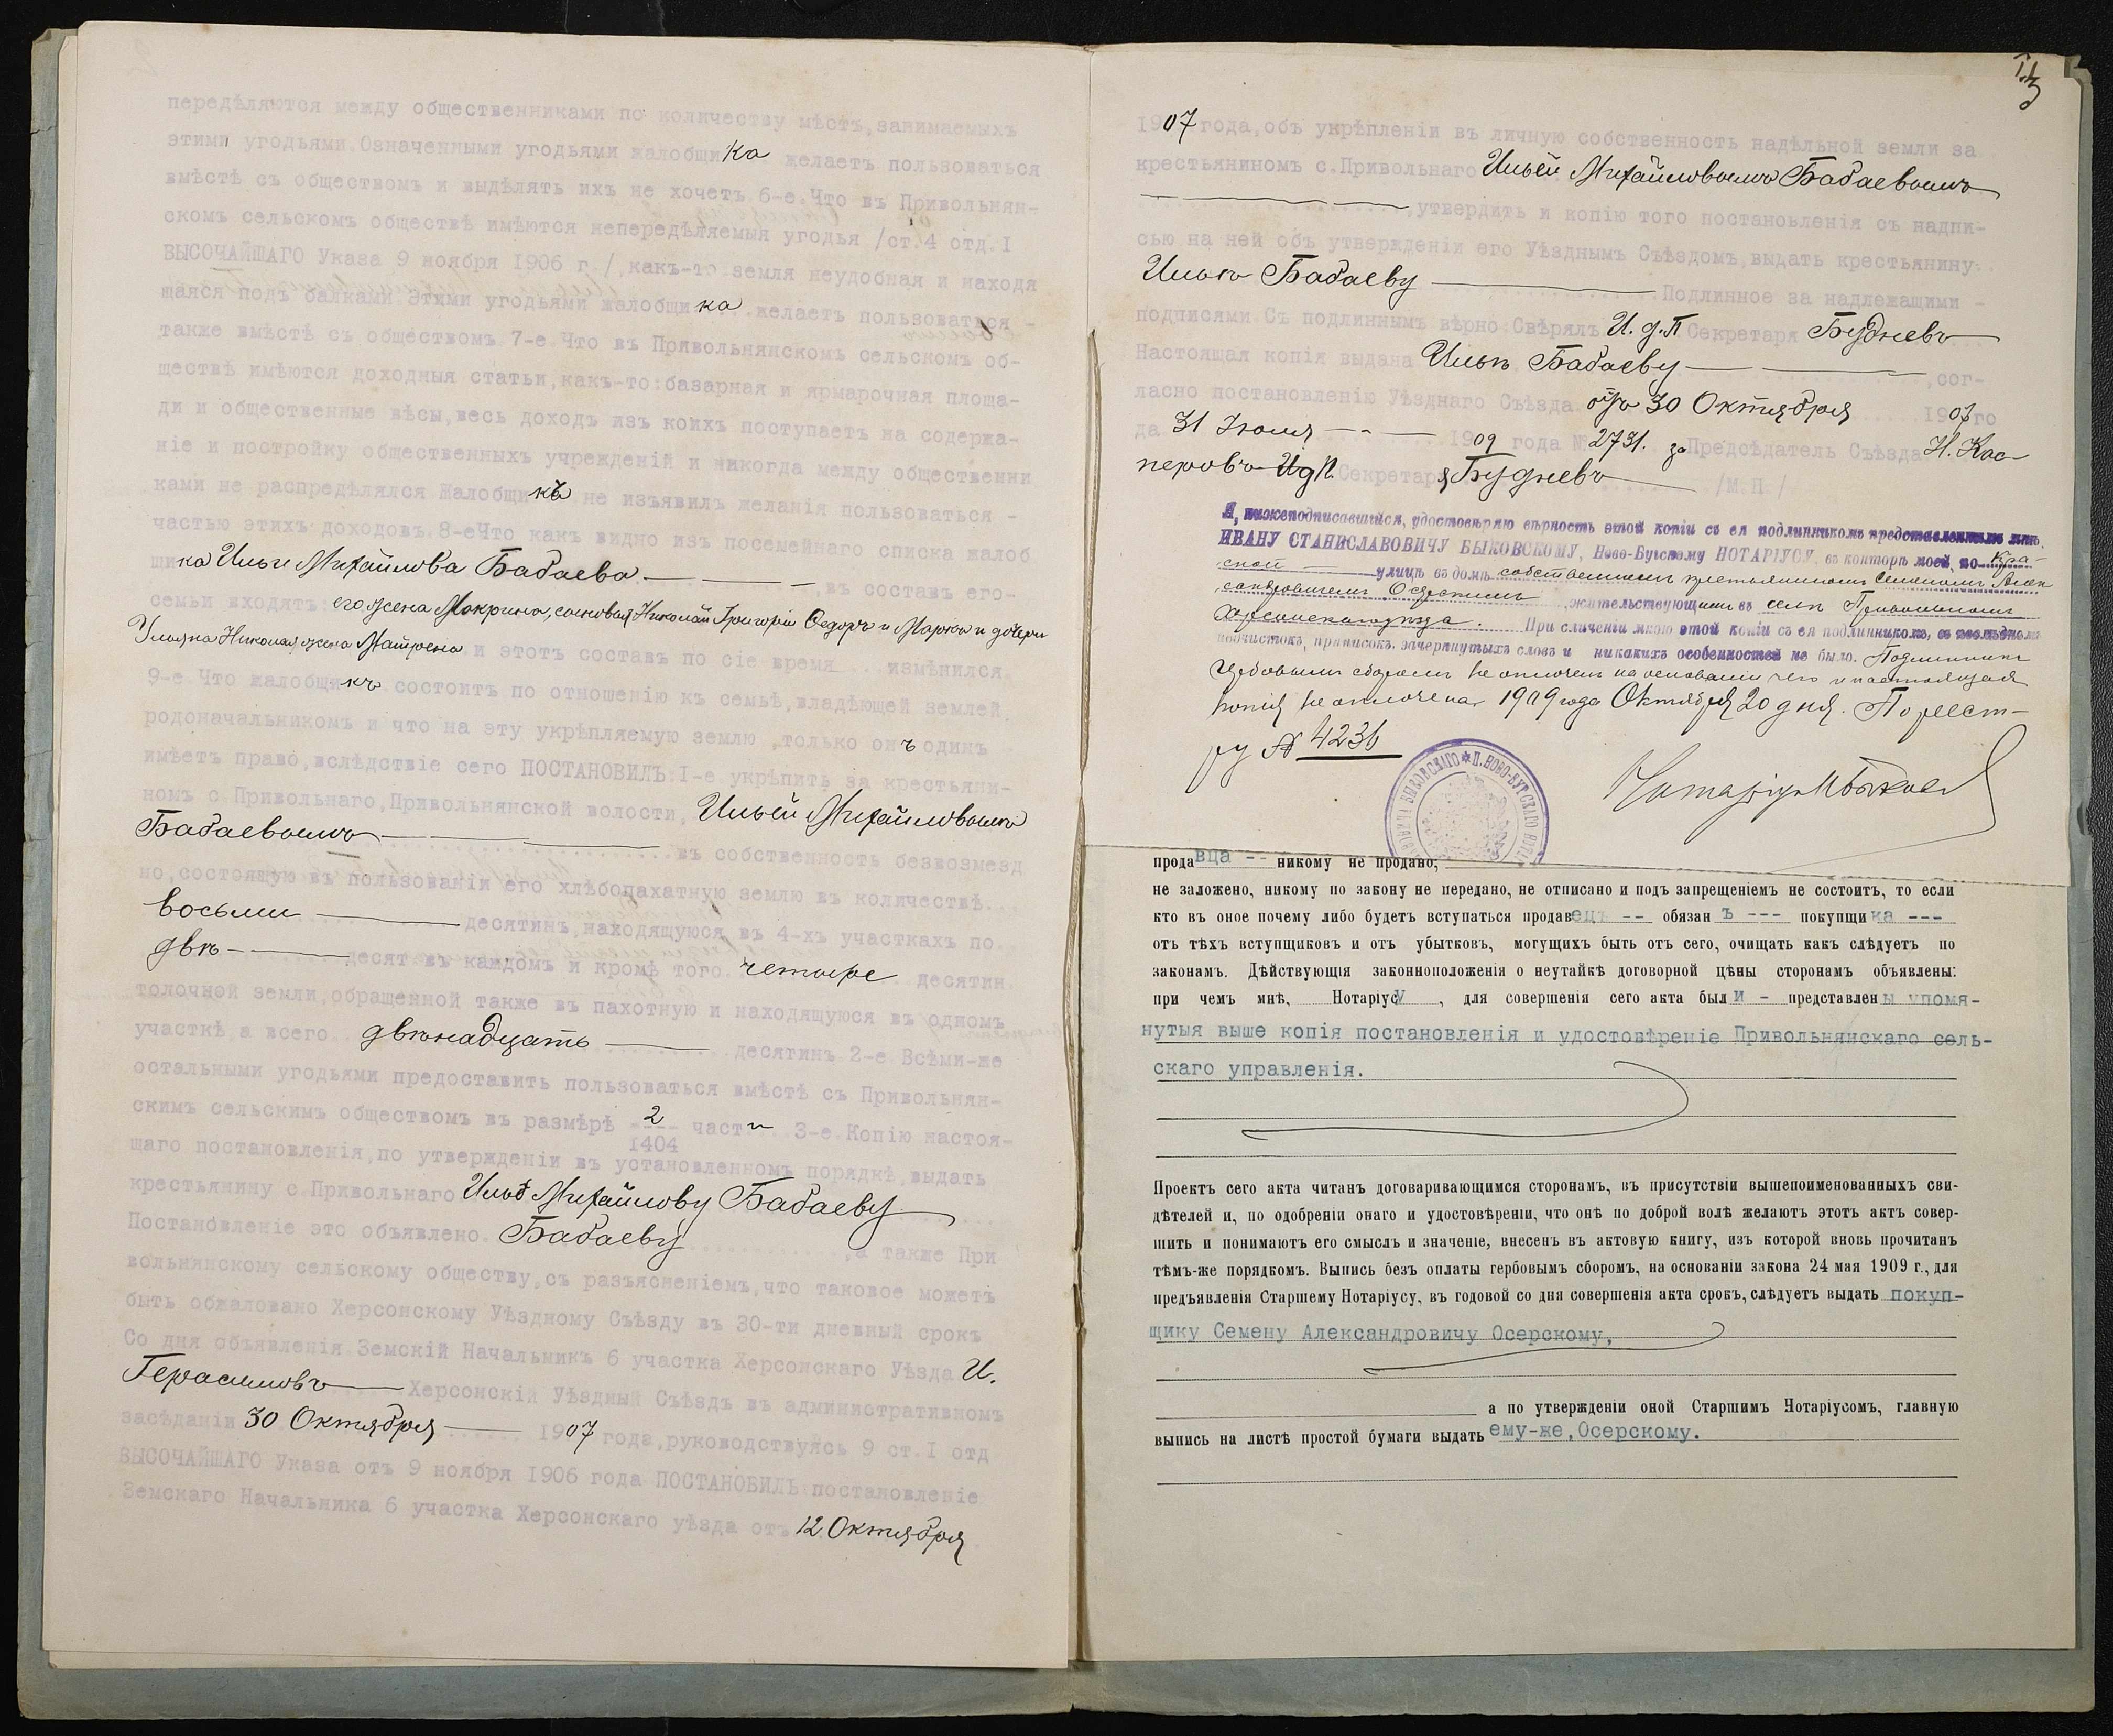 передѣляются между общественниками по количеству мѣстъ,занимаемыхъ
этими угодьями.Означенными угодьями жалобщика желаетъ пользоваться
вмѣстѣ съ обществомъ и выдѣлять ихъ не хочетъ 6-е.Что въ Привольнян-
скомъ сельскомъ обществѣ имѣются непередѣляемыя угодья /ст.4 отд.I
ВЫСОЧАЙШАГО Указа 9 ноября 1906 г./,какъ-то земля неудобная и находя
щаяся подъ балками Этими угодьями жалобщика желаетъ пользоваться -
также вмѣстѣ съ обществомъ 7-е Что въ Привольнянскомъ сельскомъ об-
ществѣ имѣются доходныя статьи,какъ-то:базарная и ярмарочная площа-
ди и общественные вѣсы,весь доходъ изъ коихъ поступаетъ на содержа-
ніе и постройку общественныхъ учрежденій и никогда между общественни
ками не распредѣлялся Жалобщикъ не изъявилъ желанія пользоваться -
частью этихъ доходовъ.8-еЧто какъ видно изъ посемейнаго списка жалоб
щика Ильи Михайлова Бабаева ,въ составъ его-
семьи входятъ: его жена Макрина, сыновья Николай Григорій Ѳедоръ и Марко и дочери
Ульяна Николая жена Матрена и этотъ составъ по сіе время измѣнился.
9-е Что жалобщикъ состоитъ по отношенію къ семьѣ,владѣющей землей,
родоначальникомъ и что на эту укрѣпляемую землю ,только онъ одинъ
имѣетъ право,вслѣдствіе сего ПОСТАНОВИЛЪ:I-е укрѣпить за крестьяни-
номъ с.Привольнаго,Привольнянской волости, Ильей Михайловымъ
Бабаевымъ въ собственность безвозмезд
но,состоящую въ пользованіи его хлѣбопахатную землю въ количествѣ
восьми десятинъ,находящуюся въ 4-хъ участкахъ по
двѣ десят.въ каждомъ и кромѣ того четыре десятин
толочной земли,обращенной также въ пахотную и находящуюся въ одномъ
участкѣ,а всего двѣнадцать десятинъ 2-е Всѣми-же
остальными угодьями предоставить пользоваться вмѣстѣ съ Привольнян-
скимъ сельскимъ обществомъ въ размѣрѣ 2/1404 части 3-е Копію настоя-
щаго постановленія,по утвержденіи въ установленномъ порядкѣ,выдать
крестьянину с Привольнаго Ильѣ Михайлову Бабаеву
Постановленіе это объявлено Бабаеву ,а также При
вольнянскому сельскому обществу,съ разъясненіемъ,что таковое можетъ
быть обжаловано Херсонскому Уѣздному Съѣзду въ 30-ти дневный срокъ
Со дня объявленія Земскій Начальникъ 6 участка Херсонскаго Уѣзда И.
Герасимовъ Херсонскій Уѣздный Съѣздъ въ административномъ
засѣданіи 30 Октября 1907 года,руководствуясь 9 ст.I отд
ВЫСОЧАЙШАГО Указа отъ 9 ноября 1906 года ПОСТАНОВИЛЪ постановленіе
Земскаго Начальника 6 участка Херсонскаго уѣзда отъ 12 Октября
1907 года,объ укрѣпленіи въ личную собственность надѣльной земли за
крестьяниномъ с.Привольнаго Ильей Михайловымъ Бабаевымъ
,утвердить и копію того постановленія съ надпи-
сью на ней объ утвержденіи его Уѣзднымъ Съѣздомъ,выдать крестьянину
Ильѣ Бабаеву Подлинное за надлежащими -
подписями.Съ подлиннымъ вѣрно:Свѣрялъ И.д.П Секретаря Будневъ
Настоящая копія выдана Ильѣ Бабаеву ,сог-
ласно постановленію Уѣзднаго Съѣзда отъ 30 Октября 1907го
да 31 Іюля 1909 года № 2731. за Предсѣдатель Съѣзда Н. Кас-
перовъ ИдП Секретаря Будневъ /М.П./
Я, нижеподписавшійся, удостовѣряю вѣрность этой копіи съ ея подлинникомъ представленнымъ мнѣ,
ИВАНУ СТАНИСЛАВОВИЧУ БЫКОВСКОМУ, Ново-Бугскому НОТАРІУСУ, въ конторѣ моей, по Кра-
сной улицѣ въ домѣ собственномъ крестьяниномъ Семеномъ Алек
сандровичемъ Осерскимъ, жительствующимъ въ селѣ Привольномъ
Херсонскаго уѣзда. При сличеніи мною этой копіи съ ея подлинникомъ, въ послѣднемъ
подчистокъ, приписокъ, зачеркнутыхъ словъ и никакихъ особенностей не было. Подлинникъ
гербовымъ сборомъ не оплоченъ на основаніи чего и настоящая
копія не оплочена 1909 года Октября 20 дня. По реест-
ру № 4236
Нотаріусъ И Быковскій
продавца -- никому не продано;
не заложено, никому по закону не передано, не отписано и подъ запрещеніемъ не состоитъ, то если
кто въ оное почему либо будетъ вступаться продавецъ -- обязанъ --- покупщика ---
отъ тѣхъ вступщиковъ и отъ убытковъ, могущихъ быть отъ сего, очищать какъ слѣдуетъ по
законамъ. Дѣйствующія законноположенія о неутайкѣ договорной цѣны сторонамъ объявлены:
при чемъ мнѣ, Нотаріусу , для совершенія сего акта были - представлены упомя-
нутыя выше копія постановленія и удостовѣреніе Привольнянскаго сель-
скаго управленія.
Проектъ сего акта читанъ договаривающимся сторонамъ, въ присутствіи вышепоименованныхъ сви-
дѣтелей и, по одобреніи онаго и удостовѣреніи, что онѣ по доброй волѣ желаютъ этотъ актъ совер-
шить и понимаютъ его смыслъ и значеніе, внесенъ въ актовую книгу, изъ которой вновь прочитанъ
тѣмъ-же порядкомъ. Выпись безъ оплаты гербовымъ сборомъ, на основаніи закона 24 мая 1909 г., для
предъявленія Старшему Нотаріусу, въ годовой со дня совершенія акта срокъ, слѣдуетъ выдать покуп-
щику Семену Александровичу Осерскому,
а по утвержденіи оной Старшимъ Нотаріусомъ, главную
выпись на листѣ простой бумаги выдать ему-же,Осерскому.